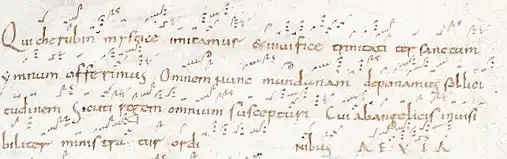 Qui cherubin mystice imitamur & vivifice trinitati ter sanctum
ymnum offerimus Omnem nunc mundanam deponamus sollici
tudinem Sicuti regem omnium suscepturi Cui ab angelicis invisi
biliter ministratur ordi nibus A E V I A